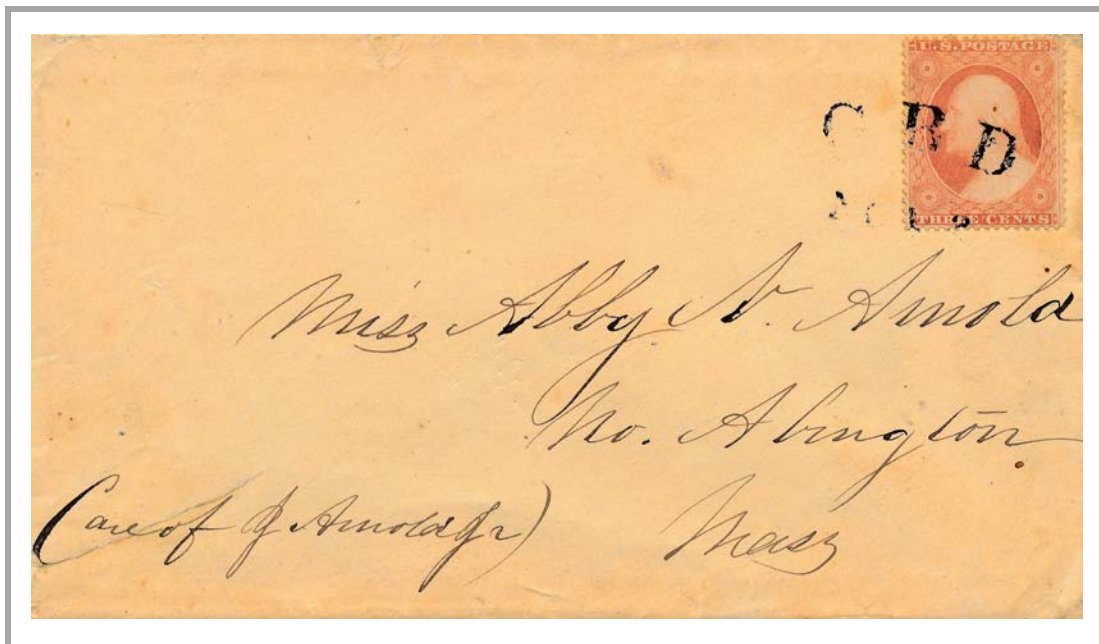 U.S. POSTAGE
C R D
THREE CENTS
Miss Abby N. Arnold
No. Abington
(Care of J Arnold Jr)
Mass